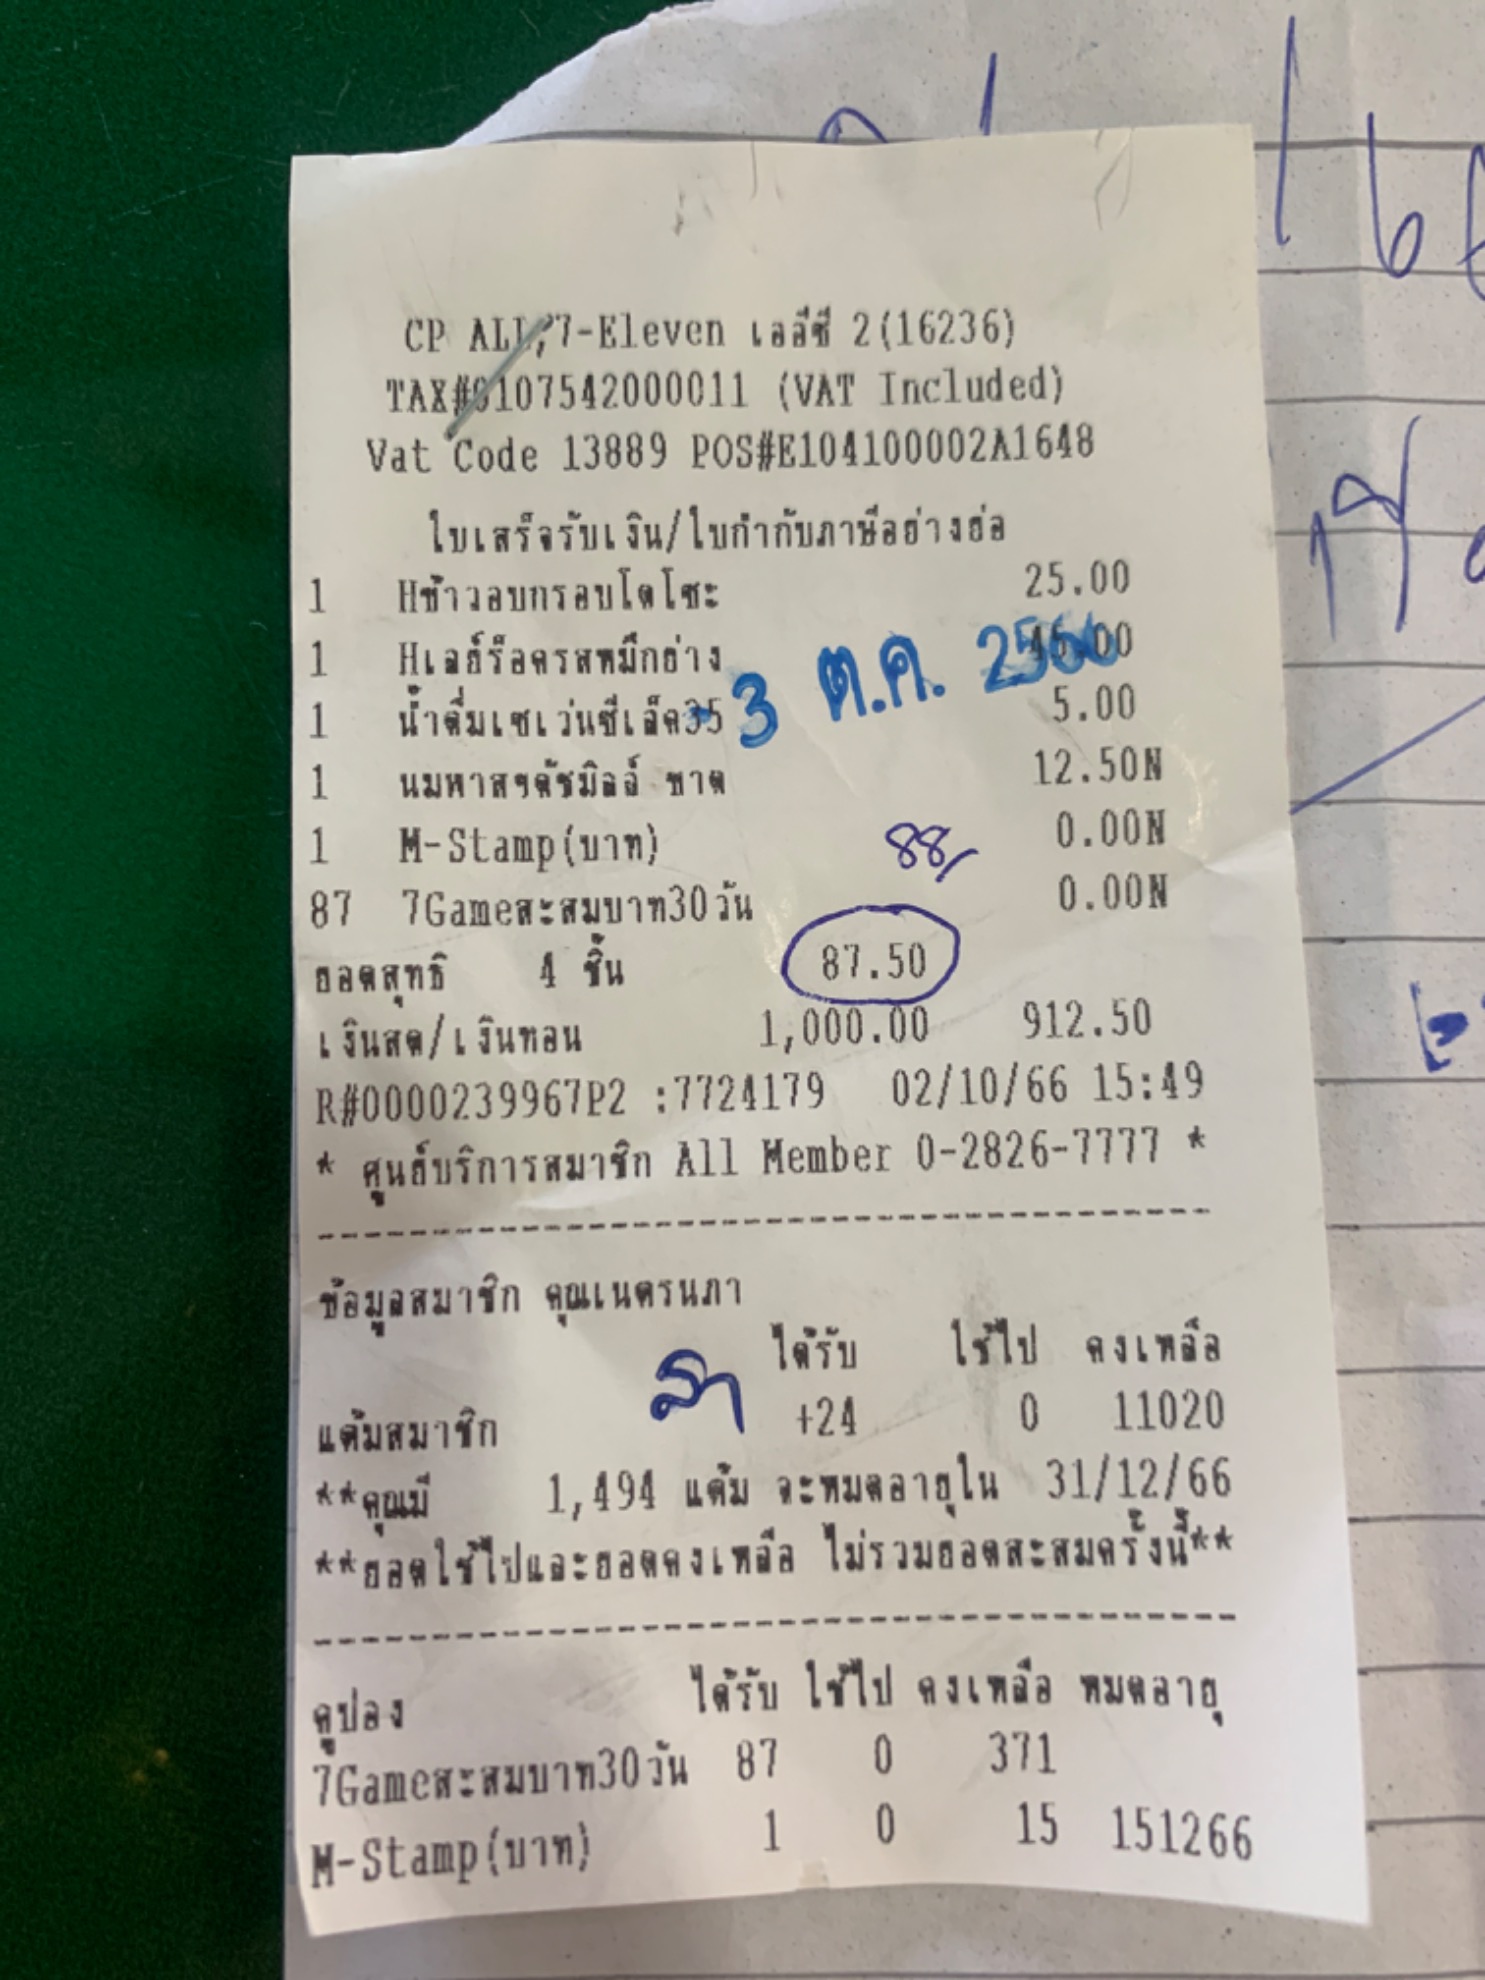 CP ALL,7-Eleven เออีซี 2(16236)
TAX#0107542000011 (VAT Included)
Vat Code 13889 POS#E104100002A1648
ใบเสร็จรับเงิน/ใบกำกับภาษีอย่างย่อ
1 Hข้าวอบกรอบโดโซะ 25.00
1 Hเลย์ร็อครสหมึกย่าง 45.00
-3 ต.ค. 2566
1 น้ำดื่มเซเว่นซีเล็ค35 5.00
1 นมพาสฯดัชมิลล์ ขาด 12.50N
1 M-Stamp(บาท) 0.00N
88/-
87 7Gameสะสมบาท30วัน 0.00N
ยอดสุทธิ 4 ชิ้น 87.50
เงินสด/เงินทอน 1,000.00 912.50
R#0000239967P2 :7724179 02/10/66 15:49
* ศูนย์บริการสมาชิก All Member 0-2826-7777 *
ข้อมูลสมาชิก คุณเนตรนภา
ได้รับ ใช้ไป คงเหลือ
แต้มสมาชิก +24 0 11020
**คุณมี 1,494 แต้ม จะหมดอายุใน 31/12/66
**ยอดใช้ไปและยอดคงเหลือ ไม่รวมยอดสะสมครั้งนี้**
คูปอง ได้รับ ใช้ไป คงเหลือ หมดอายุ
7Gameสะสมบาท30วัน 87 0 371
M-Stamp(บาท) 1 0 15 151266